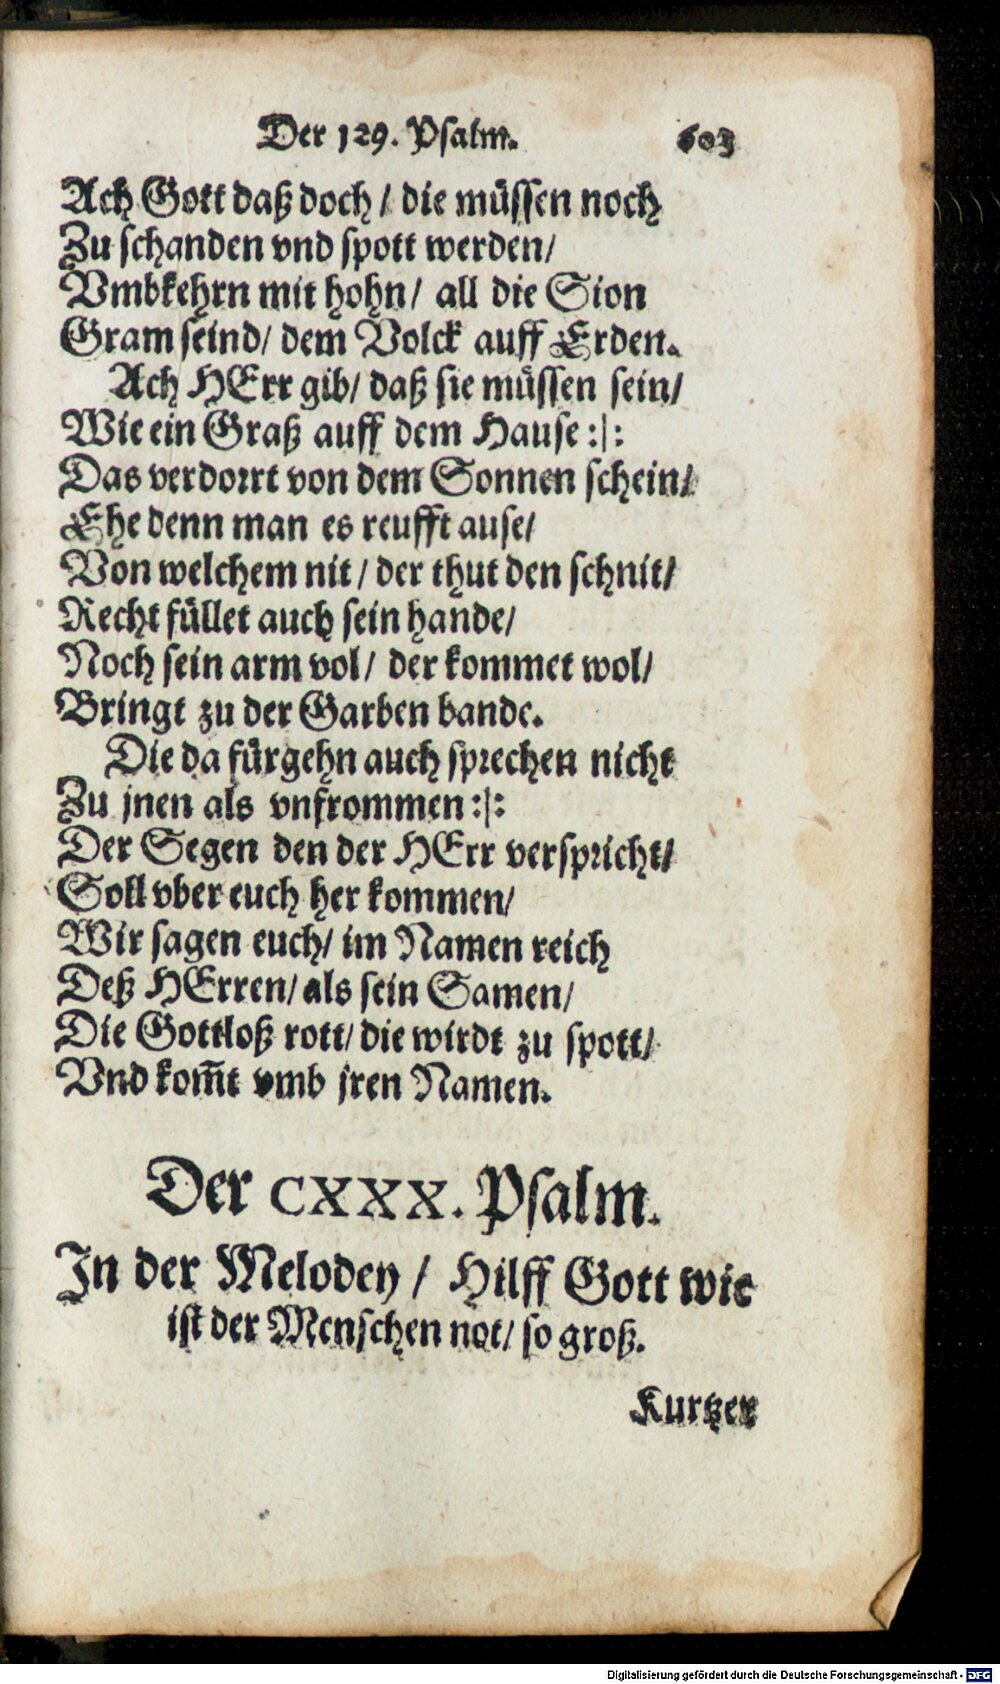 Der 129. Psalm. 603
Ach Gott daß doch / die müssen noch
Zu schanden vnd spott werden/
Vmbkehrn mit hohn/ all die Sion
Gram seind/ dem Volck auff Erden.
Ach HErr gib/ daß sie müssen sein/
Wie ein Graß auff dem Hause :|:
Das verdorrt von dem Sonnen schein/
Ehe denn man es reufft ause/
Von welchem nit / der thut den schnit/
Recht füllet auch sein hande/
Noch sein arm vol/ der kommet wol/
Bringt zu der Garben bande.
Die da fürgehn auch sprechen nicht
Zu jnen als vnfrommen :|:
Der Segen den der HErr verspricht/
Soll vber euch her kommen/
Wir sagen euch/ im Namen reich
Deß HErren/ als sein Samen/
Die Gottloß rott/ die wirdt zu spott/
Vnd kom̃t vmb jren Namen.
Der CXXX. Psalm.
In der Melodey / Hilff Gott wie
ist der Menschen not/ so groß.
Kurtzer
Digitalisierung gefördert durch die Deutsche Forschungsgemeinschaft - DFG